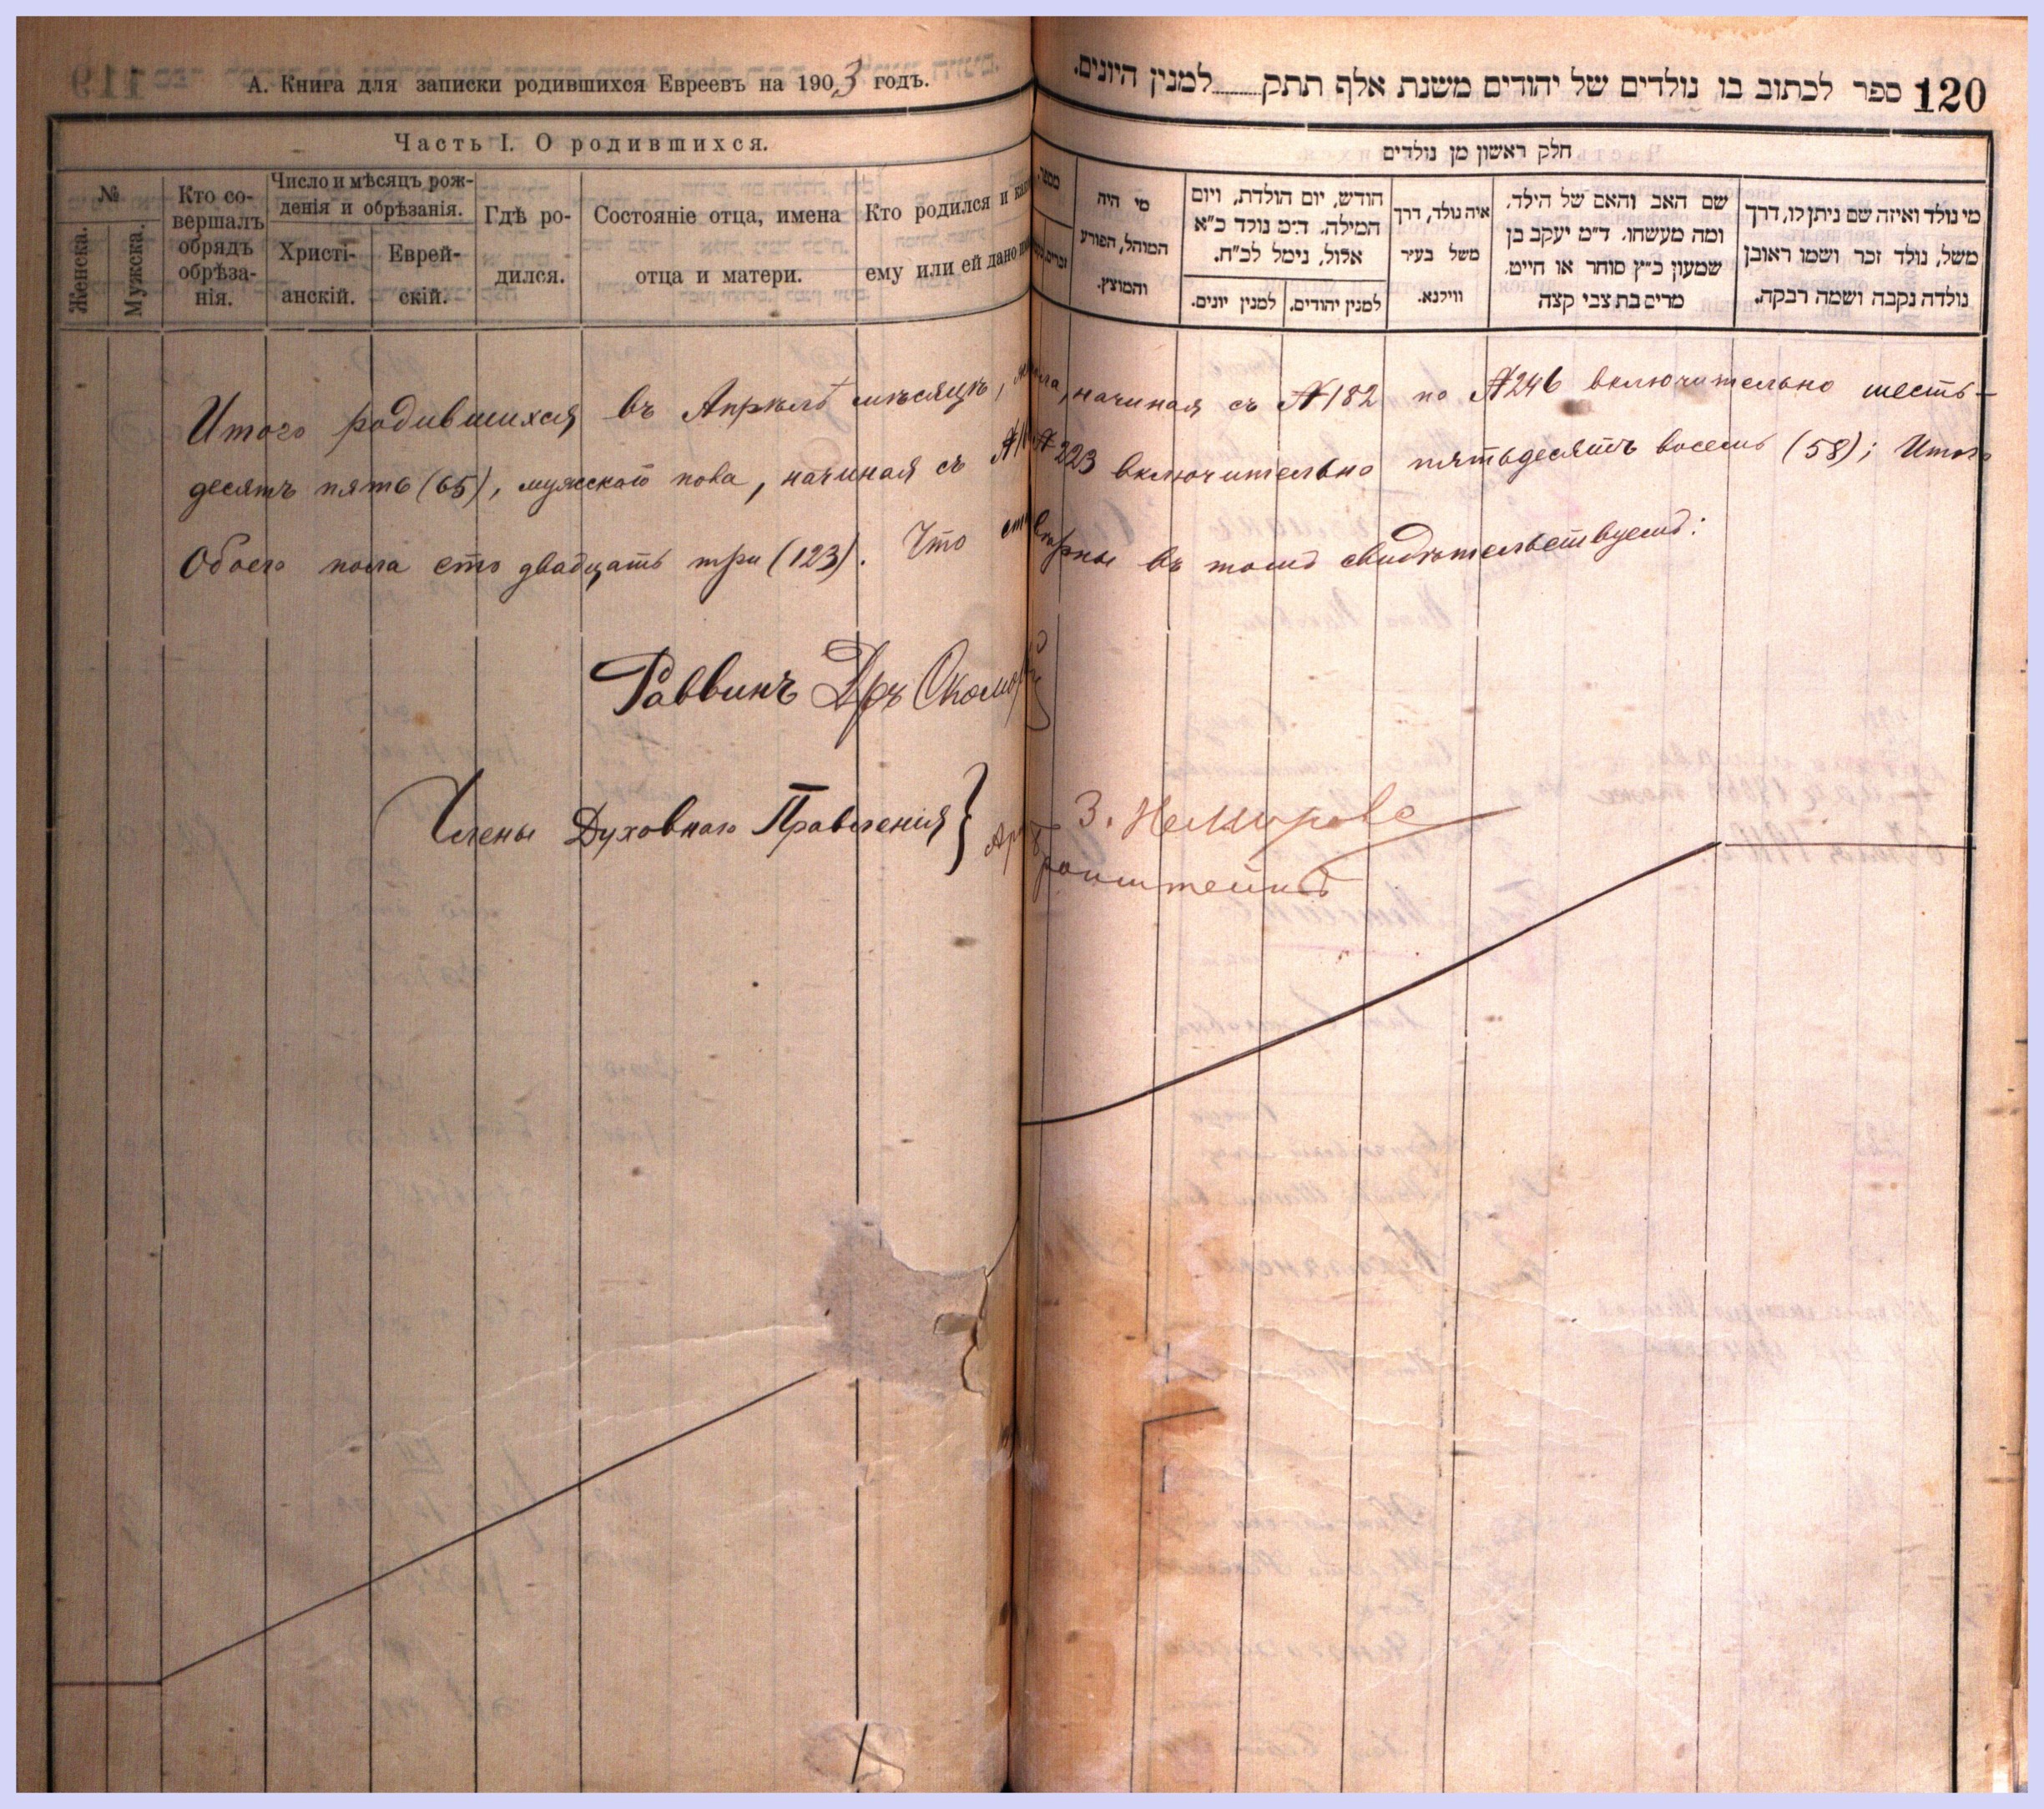 А. Книга для записки родившихся Евреевъ на 1903 годъ.
120 ספר לכתוב בו נולדים של יהודים משנת אלף תתק למנין היונים.
Часть I. О родившихся.
№
Женска.
Мужска.
Кто со-
вершалъ
обрядъ
обрѣза-
нія.
Число и мѣсяцъ рож-
денія и обрѣзанія.
Христі-
анскій.
Еврей-
скій.
Гдѣ ро-
дился.
Состояніе отца, имена
отца и матери.
Кто родился и
ему или ей дано
חלק ראשון מן נולדים
מי נולד ואיזה שם ניתן לו, דרך
משל, נולד זכר ושמו ראובן
נולדה נקבה ושמה רבקה.
שם האב והאם של הילד,
ומה מעשהו, ד"מ יעקב בן
שמעון כ"ץ סוחר או חייט,
מרים בת צבי קצה
איה נולד, דרך
משל בעיר
ווילנא.
חודש, יום הולדת, ויום
המילה. ד"מ נולד כ"א
אלול, נימל לכ"ח.
למנין יהודים.
למנין יונים.
מי היה
המוהל, הפורע
והמוצץ.
מספר.
Итого родившихся въ Апрѣлѣ мѣсяцѣ, начиная съ №182 по №246 включительно шесть-
десятъ пять (65), мужскаго пола, начиная съ № 223 включительно пятьдесятъ восемь (58); Итого
Обоего пола сто двадцать три (123). Что вѣрны въ томъ свидѣтельствуемъ:
Раввинъ Дръ
Члены Духовнаго Правленія }
З. Немировс